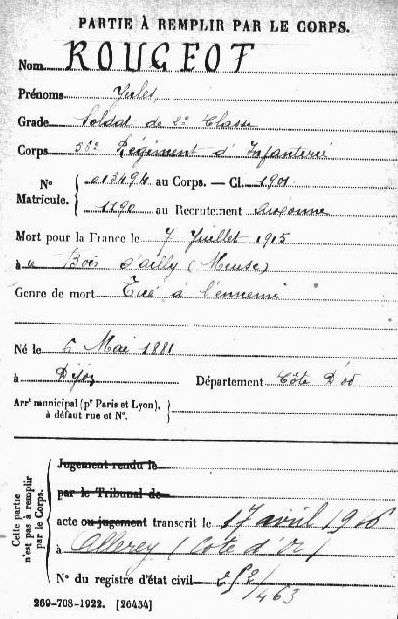 PARTIE À REMPLIR PAR LE CORPS.
Nom ROUGEOT
Prénoms Jules,
Grade Soldat de 2e Classe
Corps 56e Régiment d'Infanterie
N° Matricule. { 013494 au Corps. — Cl. 1901
1190 au Recrutement Auxonne
Mort pour la France le 7 Juillet 1915
à u Bois d'ailly (Meuse)
Genre de mort Tué à l'ennemi
Né le 6 Mai 1881
à Dijon Département Côte D'or
Arrt municipal (pr Paris et Lyon), à défaut rue et N°. {
Cette partie n'est pas à remplir par le Corps. {
Jugement rendu le
par le Tribunal de
acte ou jugement transcrit le 17 avril 1916
à (Côte d'Or)
N° du registre d'état civil /463
269-708-1922. [26434]